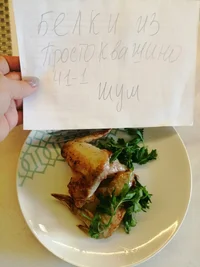 БЕЛКИ ИЗ
ПРОСТОКВАШИНО
41-1
ШУМ